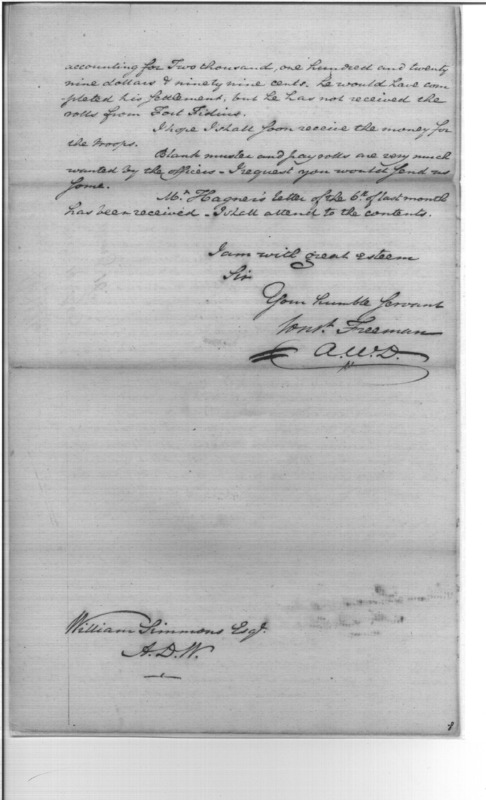 accounting for Two thousand, one hundred and twenty
nine dollars & ninety nine cents. he would have com
pleted his settlement, but he has not received the
rolls from Fort Fidius.
I hope I shall soon receive the money for
the troops.
Blank muster and pay rolls are very much
wanted by the officers - I request you would send us
some.
Mr. Hagner's letter of the 6th. of last month
has been received - I shall attend to the contents.
I am with great esteem
Sir
Your humble Servant
Const. Freeman
A.W.D.
William Simmons Esqr.
A.D.W.